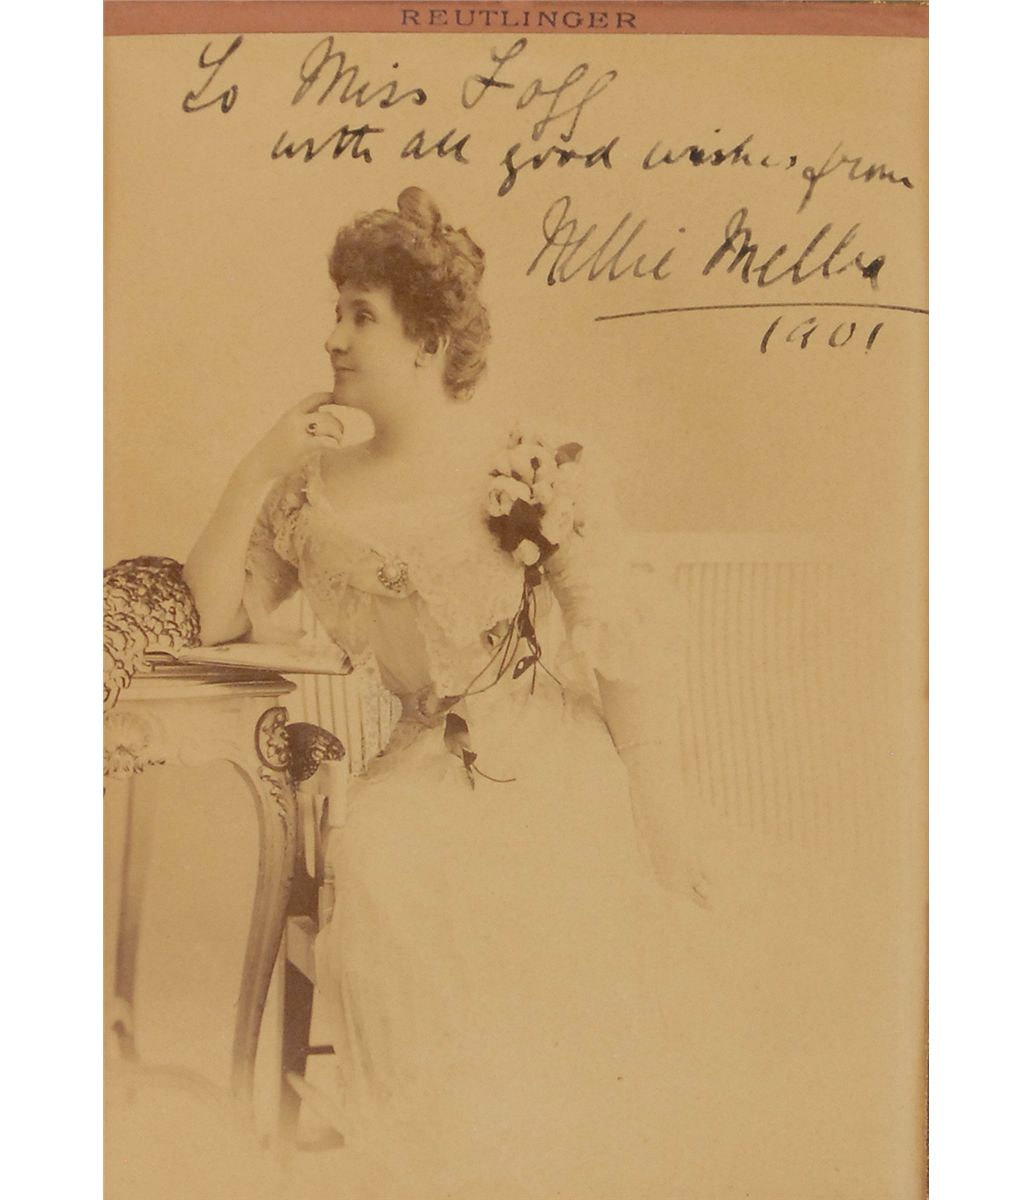 REUTLINGER
To Miss Foff
with all good wishes from
Nellie Melba
1901